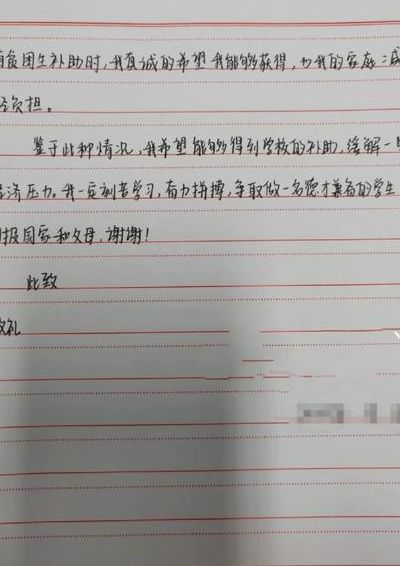 贫困生补助时,我真诚的希望我能够获得,为我的家庭减
负担。
鉴于此种情况,我希望能够得到学校的补助,缓解一
济压力。我一定刻苦学习,奋力拼搏,争取做一名德才兼备的学生
报国家和父母,谢谢!
此致
敬礼